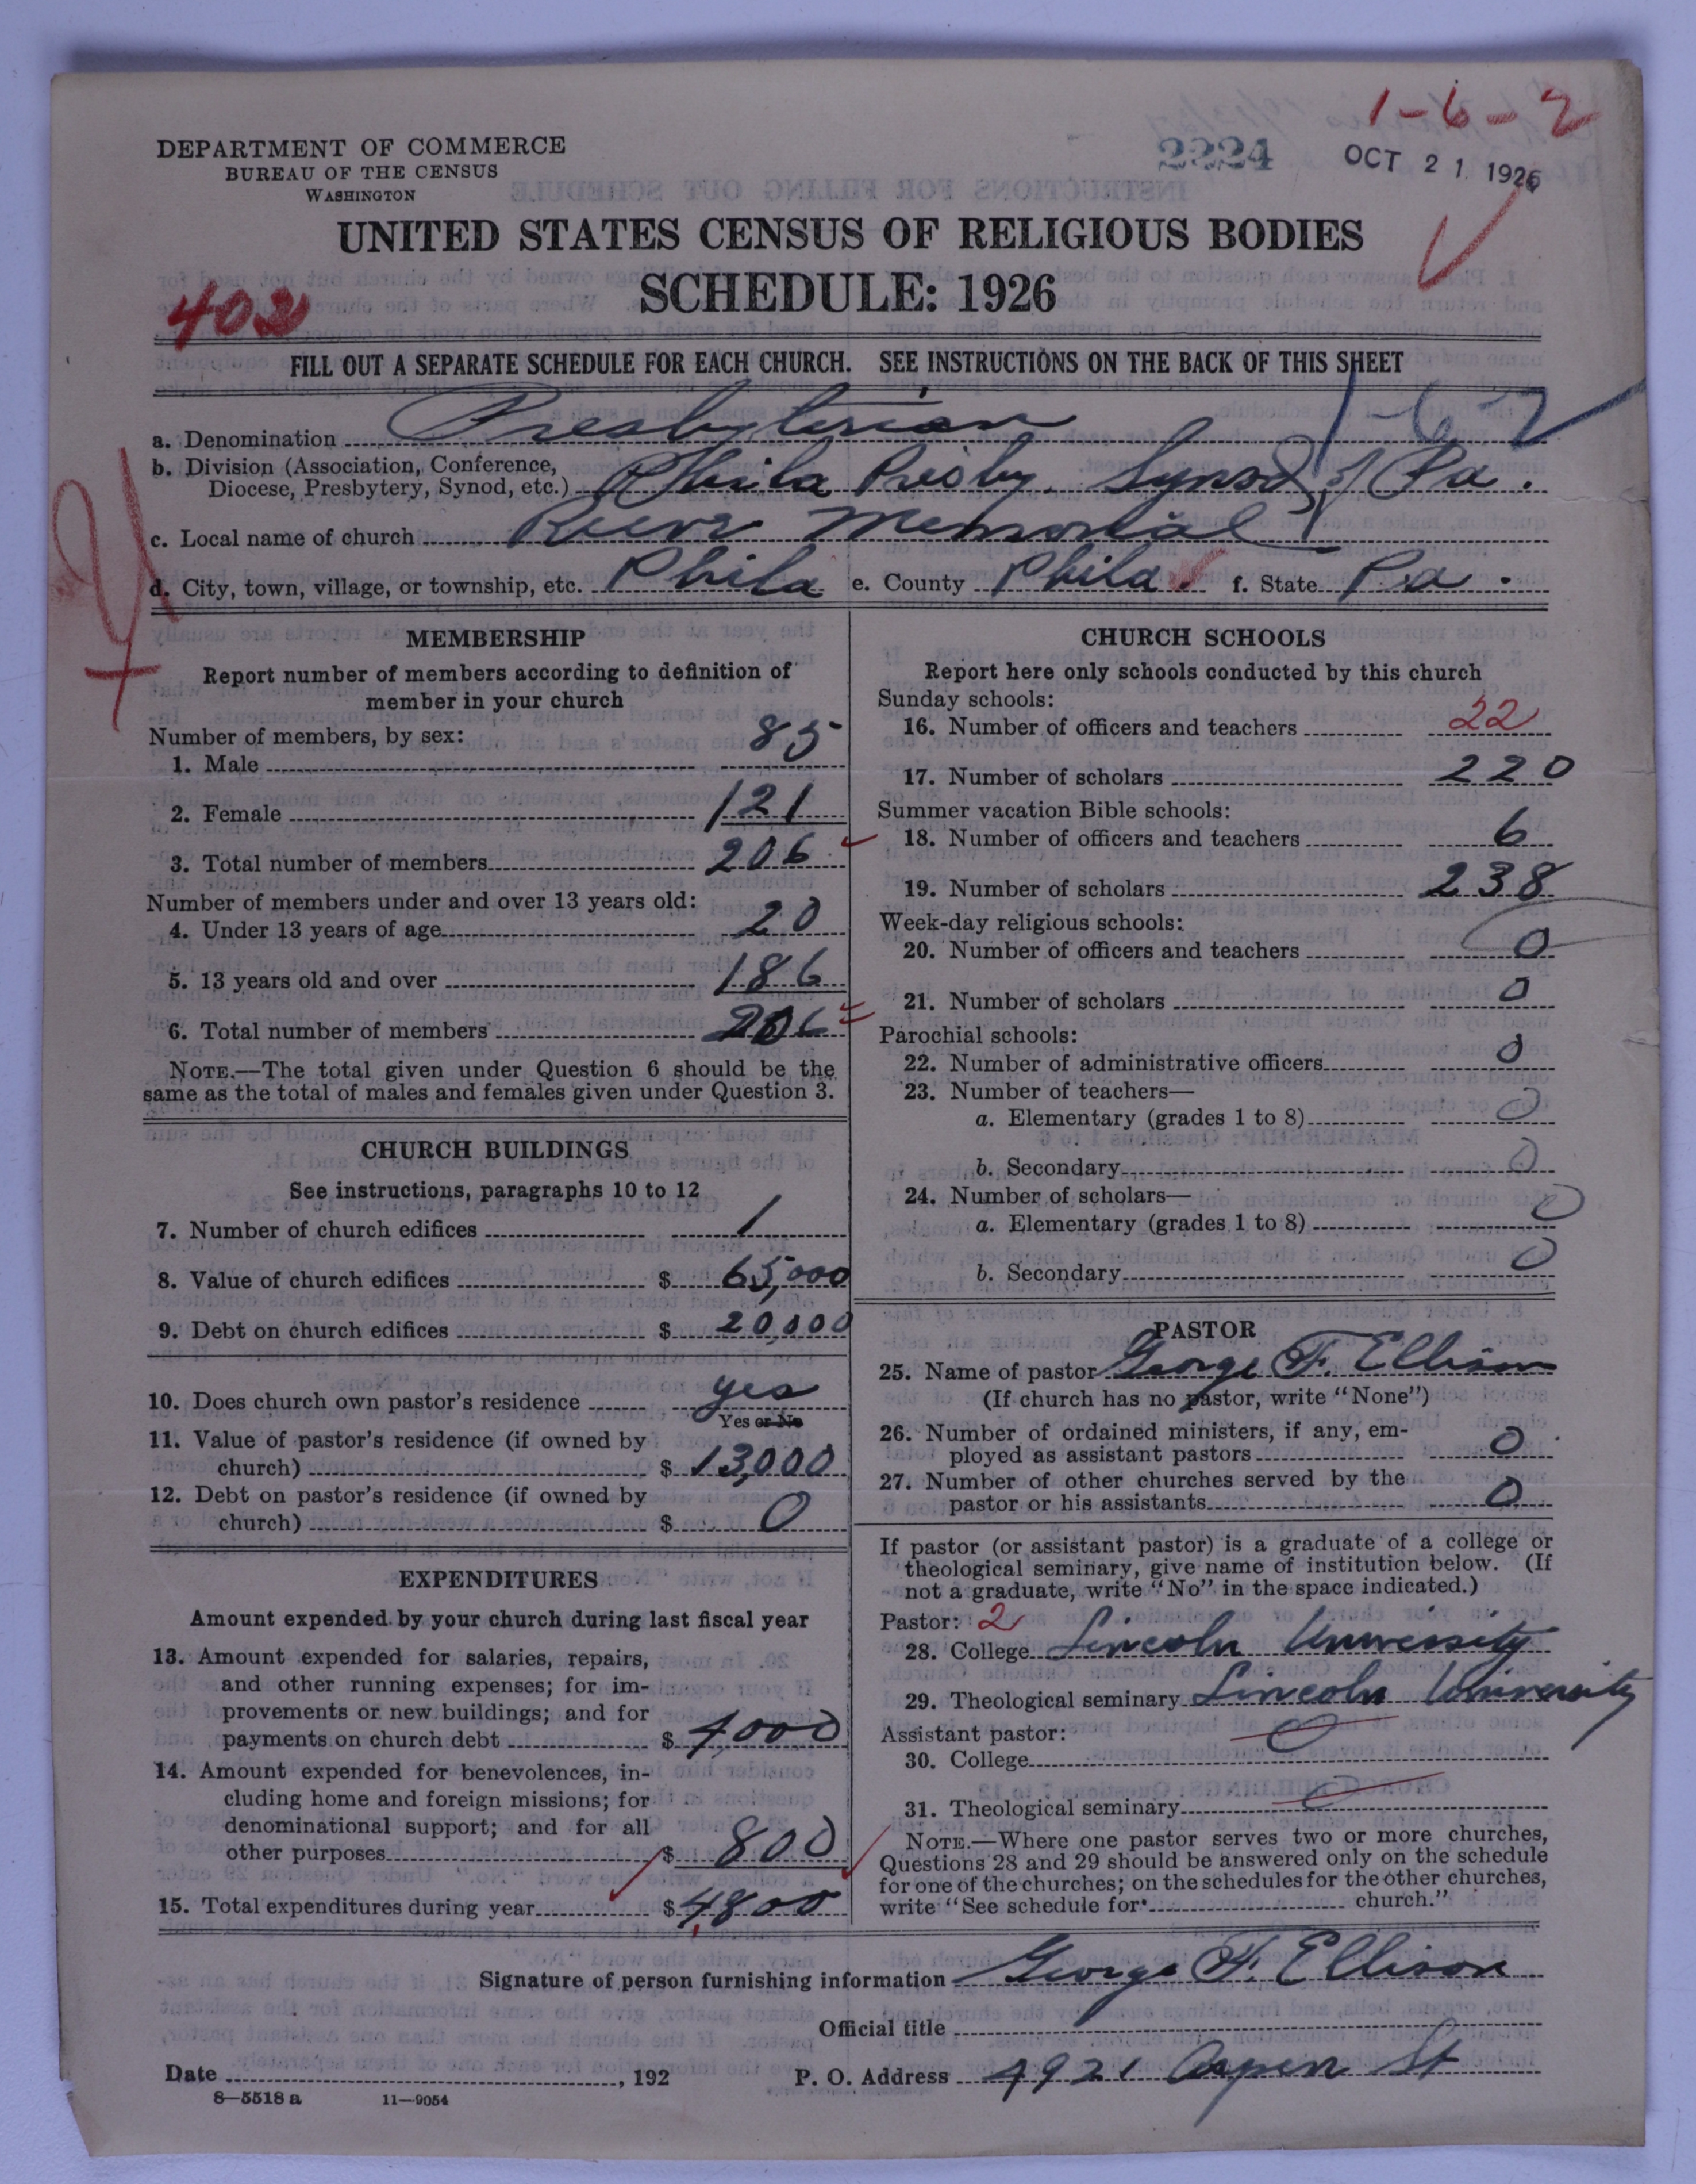 1-6-2
2224
OCT 21 1926
DEPARTMENT OF COMMERCE
BUREAU OF THE CENSUS
WASHINGTON
UNITED STATES CENSUS OF RELIGIOUS BODIES
SCHEDULE: 1926
402
FILL OUT A SEPARATE SCHEDULE FOR EACH CHURCH. SEE INSTRUCTIONS ON THE BACK OF THIS SHEET
1-62
a. Denomination Presbyterian
b. Division (Association, Conference,
Diocese, Presbytery, Synod, etc.) Phila Presby. Synod of Pa.
c. Local name of church Reeve Memorial
d. City, town, village, or township, etc. Phila e. County Phila. f. State Pa.
MEMBERSHIP
Report number of members according to definition of
member in your church
Number of members, by sex:
1. Male 85
2. Female 121
3. Total number of members 206
Number of members under and over 13 years old:
4. Under 13 years of age 20
5. 13 years old and over 186
6. Total number of members 206
NOTE.—The total given under Question 6 should be the
same as the total of males and females given under Question 3.
CHURCH BUILDINGS
See instructions, paragraphs 10 to 12
7. Number of church edifices 1
8. Value of church edifices $ 65,000
9. Debt on church edifices $ 20,000
10. Does church own pastor's residence yes
Yes or No
11. Value of pastor's residence (if owned by
church) $ 13,000
12. Debt on pastor's residence (if owned by
church) $ 0
EXPENDITURES
Amount expended by your church during last fiscal year
13. Amount expended for salaries, repairs,
and other running expenses; for im-
provements or new buildings; and for
payments on church debt $ 4,000
14. Amount expended for benevolences, in-
cluding home and foreign missions; for
denominational support; and for all
other purposes $ 800
15. Total expenditures during year $ 4800
CHURCH SCHOOLS
Report here only schools conducted by this church
Sunday schools:
16. Number of officers and teachers 22
17. Number of scholars 220
Summer vacation Bible schools:
18. Number of officers and teachers 6
19. Number of scholars 238
Week-day religious schools:
20. Number of officers and teachers 0
21. Number of scholars 0
Parochial schools:
22. Number of administrative officers 0
23. Number of teachers—
a. Elementary (grades 1 to 8) 0
b. Secondary 0
24. Number of scholars—
a. Elementary (grades 1 to 8) 0
b. Secondary 0
PASTOR
25. Name of pastor George F. Ellison
(If church has no pastor, write "None")
26. Number of ordained ministers, if any, em-
ployed as assistant pastors 0
27. Number of other churches served by the
pastor or his assistants 0
If pastor (or assistant pastor) is a graduate of a college or
theological seminary, give name of institution below. (If
not a graduate, write "No" in the space indicated.)
Pastor: 2
28. College Lincoln University
29. Theological seminary Lincoln University
Assistant pastor: 0
30. College
31. Theological seminary 0
NOTE.—Where one pastor serves two or more churches,
Questions 28 and 29 should be answered only on the schedule
for one of the churches; on the schedules for the other churches,
write "See schedule for church."
Signature of person furnishing information George F. Ellison
Official title
Date , 192 P. O. Address 4921 Aspen St
8—5518 a 11—9054